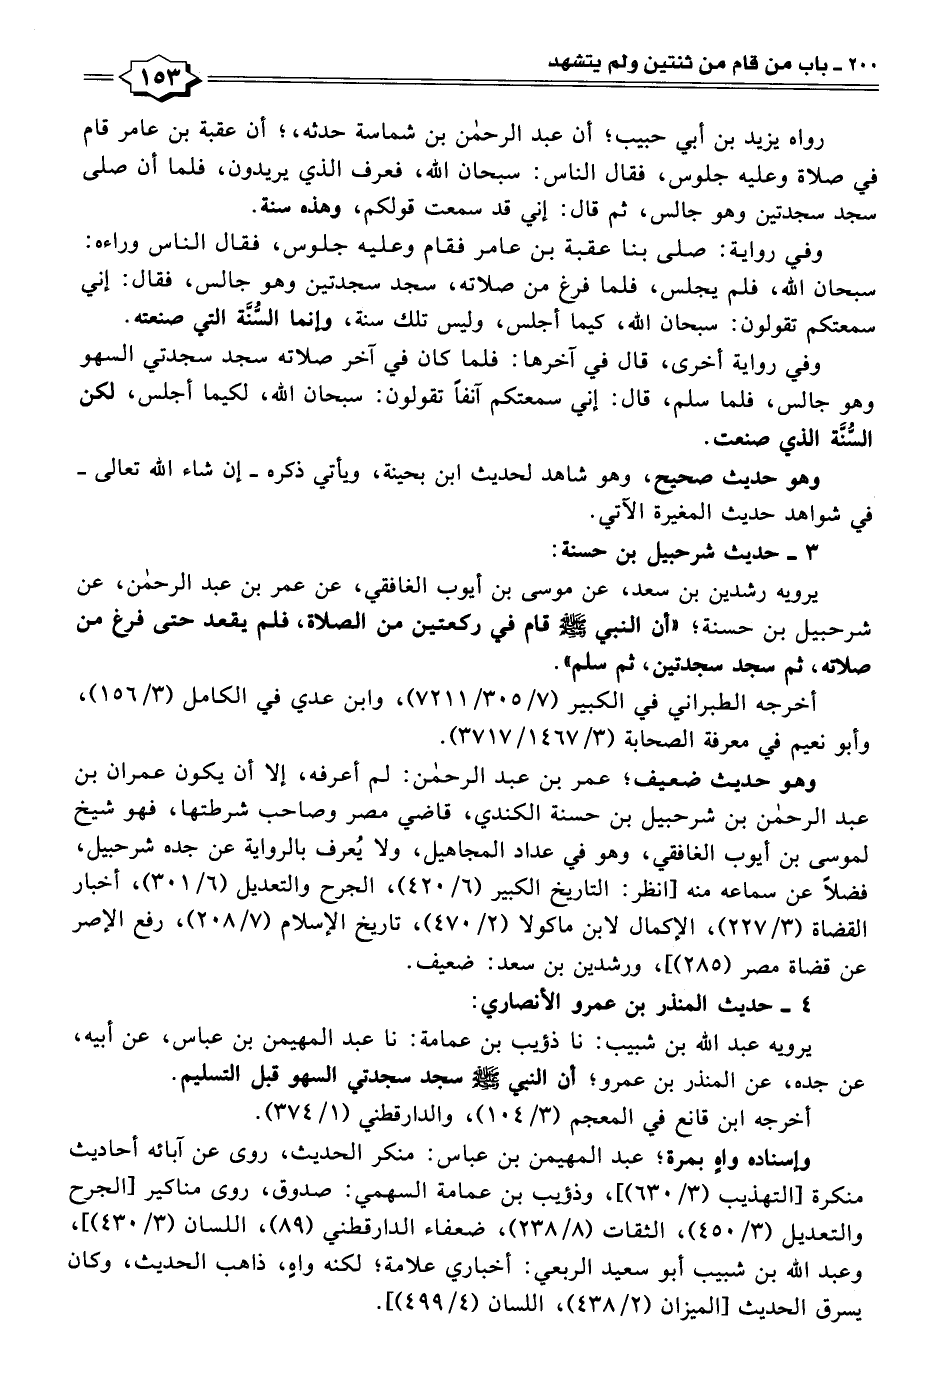 ٢٠٠ ـ باب من قام من ثنتين ولم يتشهد
١٥٣
رواه يزيد بن أبي حبيب؛ أن عبد الرحمٰن بن شماسة حدثه،؛ أن عقبة بن عامر قام
في صلاة وعليه جلوس، فقال الناس: سبحان الله، فعرف الذي يريدون، فلما أن صلى
سجد سجدتين وهو جالس، ثم قال: إني قد سمعت قولكم، وهذه سنة.
وفي رواية: صلى بنا عقبة بن عامر فقام وعليه جلوس، فقال الناس وراءه:
سبحان الله، فلم يجلس، فلما فرغ من صلاته، سجد سجدتين وهو جالس، فقال: إني
سمعتكم تقولون: سبحان الله، كيما أجلس، وليس تلك سنة، وإنما السُّنَّة التي صنعته.
وفي رواية أخرى، قال في آخرها: فلما كان في آخر صلاته سجد سجدتي السهو
وهو جالس، فلما سلم، قال: إني سمعتكم آنفاً تقولون: سبحان الله، لكيما أجلس، لكن
السُّنَّة الذي صنعت.
وهو حديث صحيح، وهو شاهد لحديث ابن بحينة، ويأتي ذكره ـ إن شاء الله تعالى ـ
في شواهد حديث المغيرة الآتي.
٣ ـ حديث شرحبيل بن حسنة:
يرويه رشدين بن سعد، عن موسى بن أيوب الغافقي، عن عمر بن عبد الرحمٰن، عن
شرحبيل بن حسنة؛ «أن النبي ﷺ قام في ركعتين من الصلاة، فلم يقعد حتى فرغ من
صلاته، ثم سجد سجدتين، ثم سلم».
أخرجه الطبراني في الكبير (٧/٣٠٥/٧٢١١)، وابن عدي في الكامل (٣/١٥٦)،
وأبو نعيم في معرفة الصحابة (٣/١٤٦٧/٣٧١٧).
وهو حديث ضعيف؛ عمر بن عبد الرحمٰن: لم أعرفه، إلا أن يكون عمران بن
عبد الرحمٰن بن شرحبيل بن حسنة الكندي، قاضي مصر وصاحب شرطتها، فهو شيخ
لموسى بن أيوب الغافقي، وهو في عداد المجاهيل، ولا يُعرف بالرواية عن جده شرحبيل،
فضلاً عن سماعه منه [انظر: التاريخ الكبير (٦/٤٢٠)، الجرح والتعديل (٦/٣٠١)، أخبار
القضاة (٣/٢٢٧)، الإكمال لابن ماكولا (٢/٤٧٠)، تاريخ الإسلام (٧/٢٠٨)، رفع الإصر
عن قضاة مصر (٢٨٥)]، ورشدين بن سعد: ضعيف.
٤ ـ حديث المنذر بن عمرو الأنصاري:
يرويه عبد الله بن شبيب: نا ذؤيب بن عمامة: نا عبد المهيمن بن عباس، عن أبيه،
عن جده، عن المنذر بن عمرو؛ أن النبي ﷺ سجد سجدتي السهو قبل التسليم.
أخرجه ابن قانع في المعجم (٣/١٠٤)، والدارقطني (١/٣٧٤).
وإسناده واهٍ بمرة؛ عبد المهيمن بن عباس: منكر الحديث، روى عن آبائه أحاديث
منكرة [التهذيب (٣/٦٣٠)]، وذؤيب بن عمامة السهمي: صدوق، روى مناكير [الجرح
والتعديل (٣/٤٥٠)، الثقات (٨/٢٣٨)، ضعفاء الدارقطني (٨٩)، اللسان (٣/٤٣٠)]،
وعبد الله بن شبيب أبو سعيد الربعي: أخباري علامة؛ لكنه واهٍ، ذاهب الحديث، وكان
يسرق الحديث [الميزان (٢/٤٣٨)، اللسان (٤/٤٩٩)].